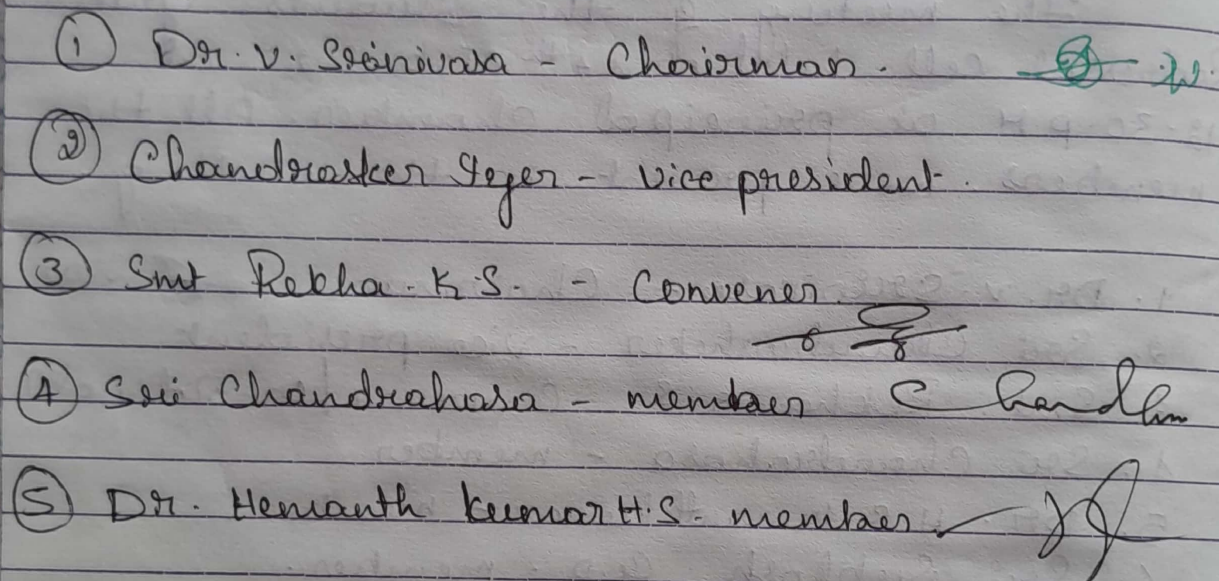 ① Dr. V. Srinivasa - Chairman.
② Chandrasker Iyer - Vice president.
③ Smt Rekha. K.S. - Convener
④ Sri Chandrahasa - member
⑤ Dr. Hemanth Kumar H.S. - member